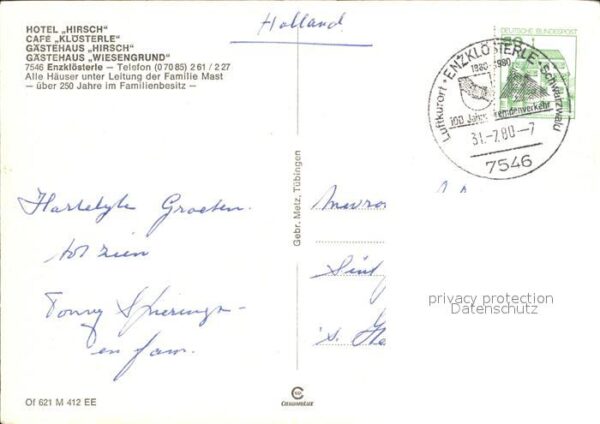 HOTEL „HIRSCH"
CAFE „KLÖSTERLE"
GÄSTEHAUS „HIRSCH"
GÄSTEHAUS „WIESENGRUND"
7546 Enzklösterle – Telefon (0 70 85) 2 61 / 2 27
Alle Häuser unter Leitung der Familie Mast
– über 250 Jahre im Familienbesitz –
Holland
DEUTSCHE BUNDESPOST
Luftkurort · ENZKLÖSTERLE · Schwarzwald
1880-1980
100 Jahre Fremdenverkehr
31.-7.80-7
7546
Hartelyke Groeten.
tot zien
Tonny Spierings
en fam.
Gebr. Metz, Tübingen
Mevro
's.
privacy protection
Datenschutz
Of 621 M 412 EE